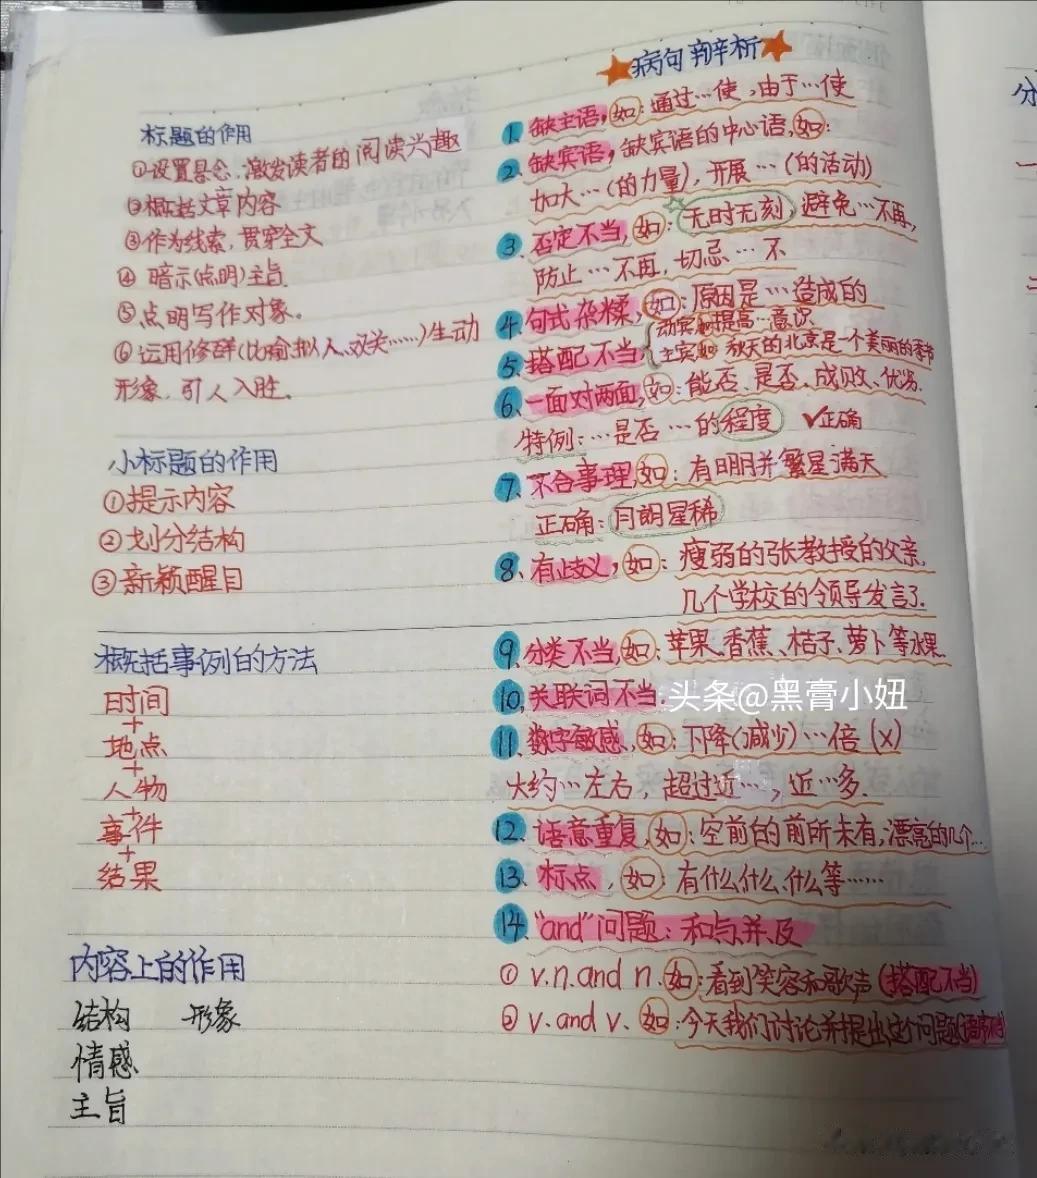 标题的作用
①设置悬念,激发读者的阅读兴趣
②概括文章内容
③作为线索,贯穿全文
④ 暗示(点明)主旨.
⑤点明写作对象。
⑥运用修辞(比喻拟人、双关……)生动
形象,引人入胜。
小标题的作用
①提示内容
②划分结构
③新颖醒目
概括事例的方法
时间
+
地点
+
人物
+
事件
+
结果
内容上的作用
结构 形象
情感
主旨
病句辨析
1. 缺主语,如:通过…使,由于…使
2、缺宾语,缺宾语的中心语,如:
加大…(的力量),开展…(的活动)
3、否定不当,如:无时无刻,避免…不再,
防止…不再,切忌…不
4、句式杂糅,如:原因是…造成的
5、搭配不当 动宾如提高…意识
主宾如 秋天的北京是一个美丽的季节
6、一面对两面,如:能否、是否、成败、优劣.
特例:…是否…的程度 ✓正确
7、不合事理,如:有明月并繁星满天
正确:月朗星稀
8、有歧义,如:瘦弱的张教授的父亲,
几个学校的领导发言了.
9、分类不当,如:苹果、香蕉、桔子、萝卜等水果
10、关联词不当.
头条@黑膏小妞
11、数字敏感,如:下降(减少)…倍(x)
大约…左右,超过近…,近…多.
12、语意重复,如:空前的前所未有,漂亮的几个…
13、标点,如:有什么什么、什么等……
14、"and"问题:和与并及
① v.n.and n.如:看到笑容和歌声(搭配不当)
② v.and v. 如:今天我们讨论并提出这个问题
分